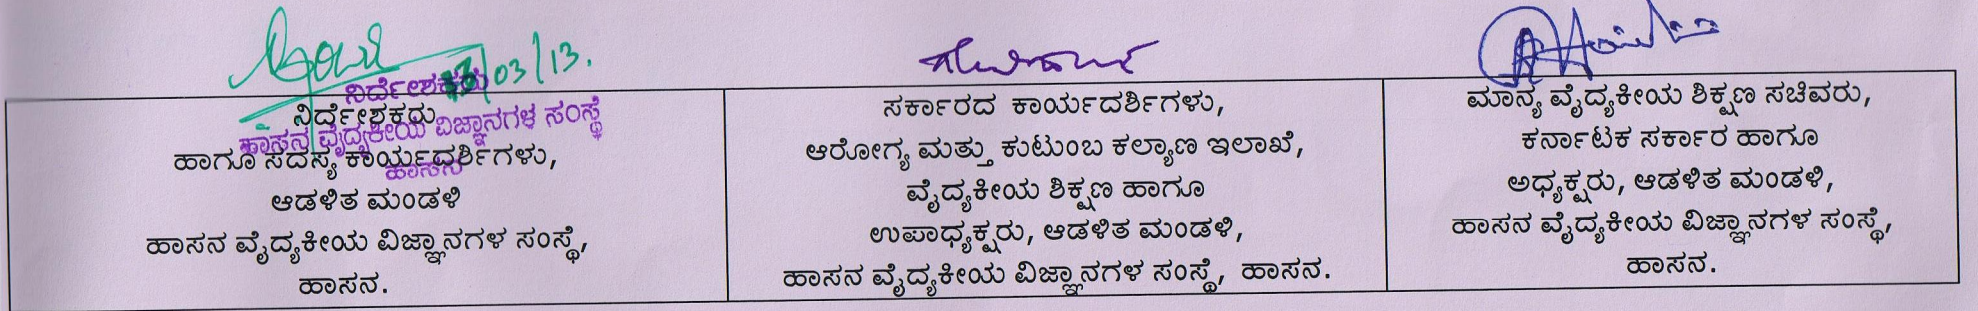 13/03/13.
ನಿರ್ದೇಶಕರು
ಹಾಸನ ವೈದ್ಯಕೀಯ ವಿಜ್ಞಾನಗಳ ಸಂಸ್ಥೆ
ಹಾಸನ
ನಿರ್ದೇಶಕರು
ಹಾಗೂ ಸದಸ್ಯ ಕಾರ್ಯದರ್ಶಿಗಳು,
ಆಡಳಿತ ಮಂಡಳಿ
ಹಾಸನ ವೈದ್ಯಕೀಯ ವಿಜ್ಞಾನಗಳ ಸಂಸ್ಥೆ,
ಹಾಸನ.
ಸರ್ಕಾರದ ಕಾರ್ಯದರ್ಶಿಗಳು,
ಆರೋಗ್ಯ ಮತ್ತು ಕುಟುಂಬ ಕಲ್ಯಾಣ ಇಲಾಖೆ,
ವೈದ್ಯಕೀಯ ಶಿಕ್ಷಣ ಹಾಗೂ
ಉಪಾಧ್ಯಕ್ಷರು, ಆಡಳಿತ ಮಂಡಳಿ,
ಹಾಸನ ವೈದ್ಯಕೀಯ ವಿಜ್ಞಾನಗಳ ಸಂಸ್ಥೆ, ಹಾಸನ.
ಮಾನ್ಯ ವೈದ್ಯಕೀಯ ಶಿಕ್ಷಣ ಸಚಿವರು,
ಕರ್ನಾಟಕ ಸರ್ಕಾರ ಹಾಗೂ
ಅಧ್ಯಕ್ಷರು, ಆಡಳಿತ ಮಂಡಳಿ,
ಹಾಸನ ವೈದ್ಯಕೀಯ ವಿಜ್ಞಾನಗಳ ಸಂಸ್ಥೆ,
ಹಾಸನ.